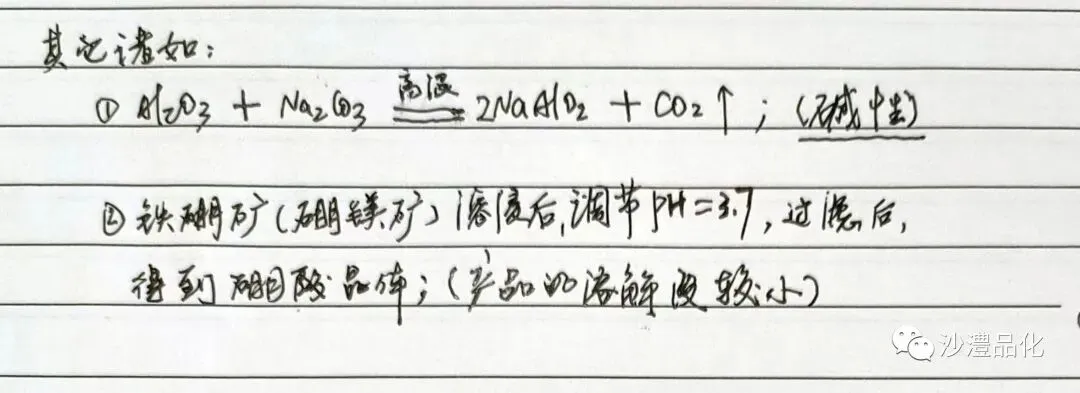 其它诸如：
① Al₂O₃ + Na₂CO₃ 高温 2NaAlO₂ + CO₂↑；（碱性）
② 铁硼矿（硼镁矿）溶浸后，调节PH=3.7，过滤后，
得到硼酸晶体；（产品的溶解度较小）
沙澧品化